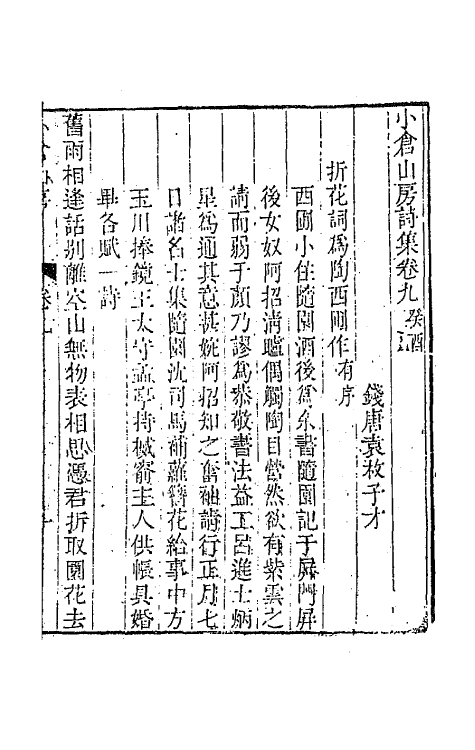 小倉山房詩集卷九 癸酉
錢唐袁枚子才
折花詞爲陶西圃作有序
西圃小住隨園酒後爲余書隨園記于屏門屏
後女奴阿招淸矑偶觸陶目營然欲有紫雲之
請而弱于顏乃謬爲恭敬書法益工呂進士炳
星爲通其意甚婉阿招知之奮袖請行正月七
日諸名士集隨園沈司馬補蘿簪花給事中方
玉川捧鏡王太守孟亭持槭齋主人供帳具婚
畢各賦一詩
舊雨相逢話别離空山無物表相思憑君折取園花去